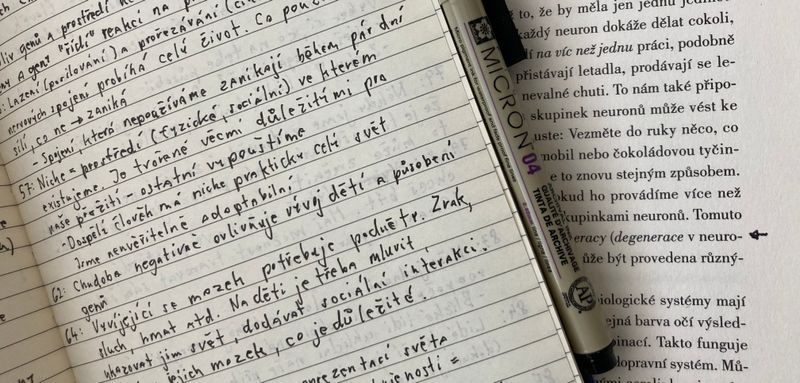 liv genů a prostředí ne
ny a gent "řídí" reakci na p
: Lazení (posilování) a prořezávání (či
nervových spojení probíhá celý život. Co použí
sílí, co ne → zaniká
- Spojení, která nepoužíváme zanikají během pár dní
57: Niche = prostředí (fyzické, sociální) ve kterém
existujeme. Je tvořené věcmi důležitími pro
naše přežití - ostatní vypouštíme
- Dospělí člověk má niche prakticky celý svět
Jsme neuvěřitelně adoptabilní
62: Chudoba negativně ovlivňuje vývoj dětí a působení
genů
64: Vyvíjející se mozek potřebuje podněty. Zrak,
sluch, hmat atd. Na děti je třeba mluvit,
ukazovat jim svět, dodávat sociální interakci.
jejich mozek, co je důležité.
prezentací světa
jenosti =
MICRON 04
QUALITÉ D'ARCHIVAGE
TINTA DE ARCHIVE
AP
to, že by měla jen jednu jedine
každý neuron dokáže dělat cokoli,
dí na víc než jednu práci, podobně
přistávají letadla, prodávají se le-
nevalné chuti. To nám také připo-
skupinek neuronů může vést ke
uste: Vezměte do ruky něco, co
mobil nebo čokoládovou tyčin-
e to znovu stejným způsobem.
okud ho provádíme více než
kupinkami neuronů. Tomuto
eracy (degenerace v neuro-
ůže být provedena různý-
biologické systémy mají
ejná barva očí výsled-
binací. Takto funguje
dopravní systém. Mů-